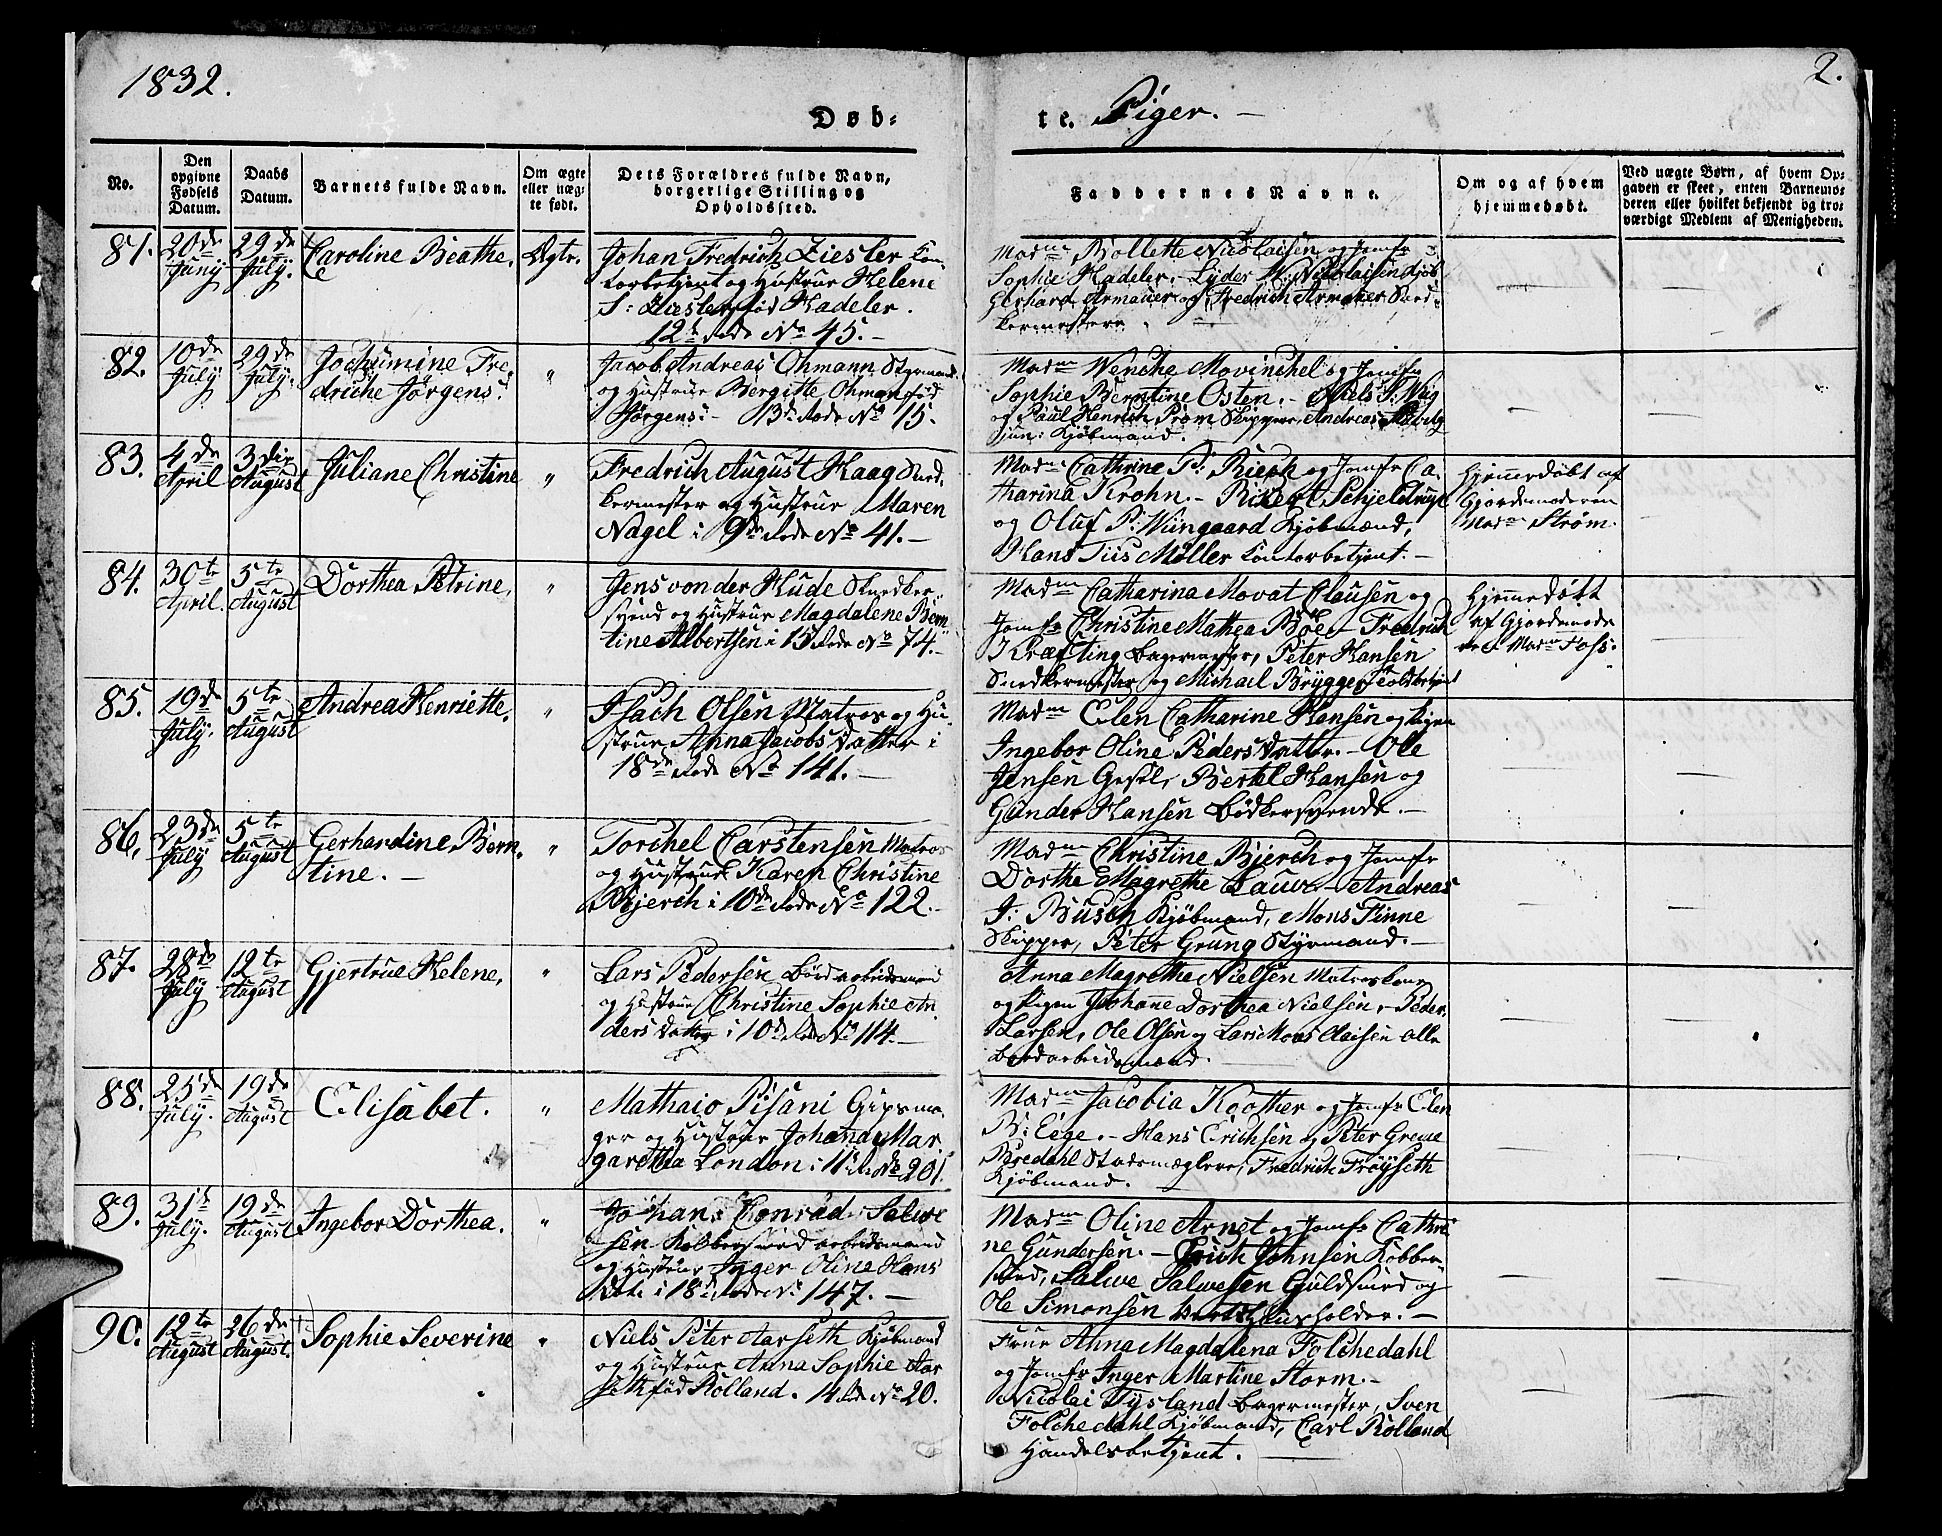 1832.
2.
Døb-
te. Piger. —
No.
Den
opgivne
Fødsels
Datum.
Daabs
Datum.
Barnets fulde Navn.
Om ægte
eller uæg-
te født.
Dets Forældres fulde Navn,
borgerlige Stilling og
Opholdssted.
Faddernes Navne.
Om og af hvem
hjemmedøbt.
Ved uægte Børn, af hvem Op-
gaven er skeet, enten Barnemo-
deren eller hvilket bekjendt og tro-
værdigt Medlem af Menigheden.
81.
20de
Juny
29de
July.
Caroline Beathe.
Ægte.
Johan Fredrich Ziesler Con-
torbetjent og Hustrue Helene
S: Ziesler, fød Kadeler.
12te Rode No 45. —
Madme Bollette Nicolaisen og Jomfr
Sophie Kadeler. Lyder W: Nicolaisen Kjøb
Gerhard Armauer og Fredrich Armauer Sned-
kermestere.
82.
10de
July
29de
July.
Jochumine Fre-
driche Jørgens:
"
Jacob Andreas Ohmann Styrmand
og Hustrue Bergitte Ohman fød
Jørgens: — 13de Rode No 15.
Madme Wenche Movinchel og Jomfr
Sophie Berntine Osten. — Niels T: Wiig
og Paul Henrich Prøm Skippere, Andreas
jun: Kjøbmænd.
83.
4de
April
3die
August
Juliane Christine
"
Fredrich August Haag Sned-
kermester og Hustrue Maren
Nagel i 9de Rode No 41. —
Madme Cathrine P: Biech og Jomfr Ca-
tharina Krohn. — Rikert Schjelderup
og Oluf P: Wiingaard Kjøbmænd,
Hans Tiis Møller Contorbetjent. —
Hjemmedøbt af
Gjordemoderen
Madme Strøm.
84.
30te
April.
5te
August
Dorthea Petrine,
"
Jens von der Hude Snedker-
svend og Hustrue Magdalene Bern
tine Albertsen i 15 Rode No 74. —
Madme Catharina Movat Clausen og
Jomfr Christine Mathea Bøe. — Fredrich
Kræfting Bagermester, Peter Hansen
Snedkermester og Michael Brygger Toldbetjent
Hjemmedøbt
af Gjordemode
ren Madme Foss.
85.
19de
July.
5te
August
Andrea Henriette.
"
Isach Olsen Matros og Hu-
strue Anna Jacobs Datter i
18de Rode No 141. —
Madme Elen Catharine Hansen og Pigen
Ingebor Oline Peders Datter. — Ole
Jensen Gesel, Bertel Hansen og
Gunder Hansen Bødkersvende. —
86.
23de
July
5te
August
Gerhardine Bern-
tine. —
"
Torchel Carstensen Matros
og Hustrue Karen Christine
Bjerch i 10de Rode No 122. —
Madme Christine Bjerch og Jomfr
Dorthe Magrethe Lauw. — Andreas
J: Busch Kjøbmand, Mons Finne
Skipper, Peter Grung Styrmand. —
87.
28de
July
12te
August
Gjertrue Helene,
"
Lars Pedersen Bordarbeidsmand
og Hustrue Christine Sophie An-
ders Datter i 10de Rode No 114. —
Anna Magrethe Nielsen Matroskone
og Pigen Johane Dorthea Nielsen. Peder
Larsen, Ole Olsen og Lars Mons Claisen alle
Bordarbeidsmænd.
88.
25de
July.
19de
August
Elisabet.
"
Mathaio Pisani Gipsma-
ger og Hustrue Johana Mar
garetha London i 11te Rode 201.
Madme Jacobia Koother og Jomfr Elen
B: Eege. — Hans Erichsen og Peter Greve
Bredahl Stadsmæglere, Fredrich Frøyseth
Kjøbmand.
89.
31te
July.
19de
August
Ingebor Dorthea.
"
Johan Conrad Salwe
sen Kobbersmed arbeidsmand
og Hustrue Inger Oline Hans
Datr i 18de Rode No 147. —
Madme Oline Arnet og Jomfr Cathri
ne Gundersen. — Erich Johnsen Kobber-
smed, Salwe Salwesen Guldsmed og
Ole Simonsen Vertshuusholder. —
90.
12te
August
26de
August.
Sophie Severine
"
Niels Peter Aarseth Kjøbmand
og Hustrue Anna Sophie Aar
seth fød Rolland. 4 Rode No 20.
Frue Anna Magdalena Folchedahl
og Jomfr Inger Martine Storm. —
Nicolai Tysland Bagermester, Sven
Folchedahl Kjøbmand, Carl Rolland
Handelsbetjent. —